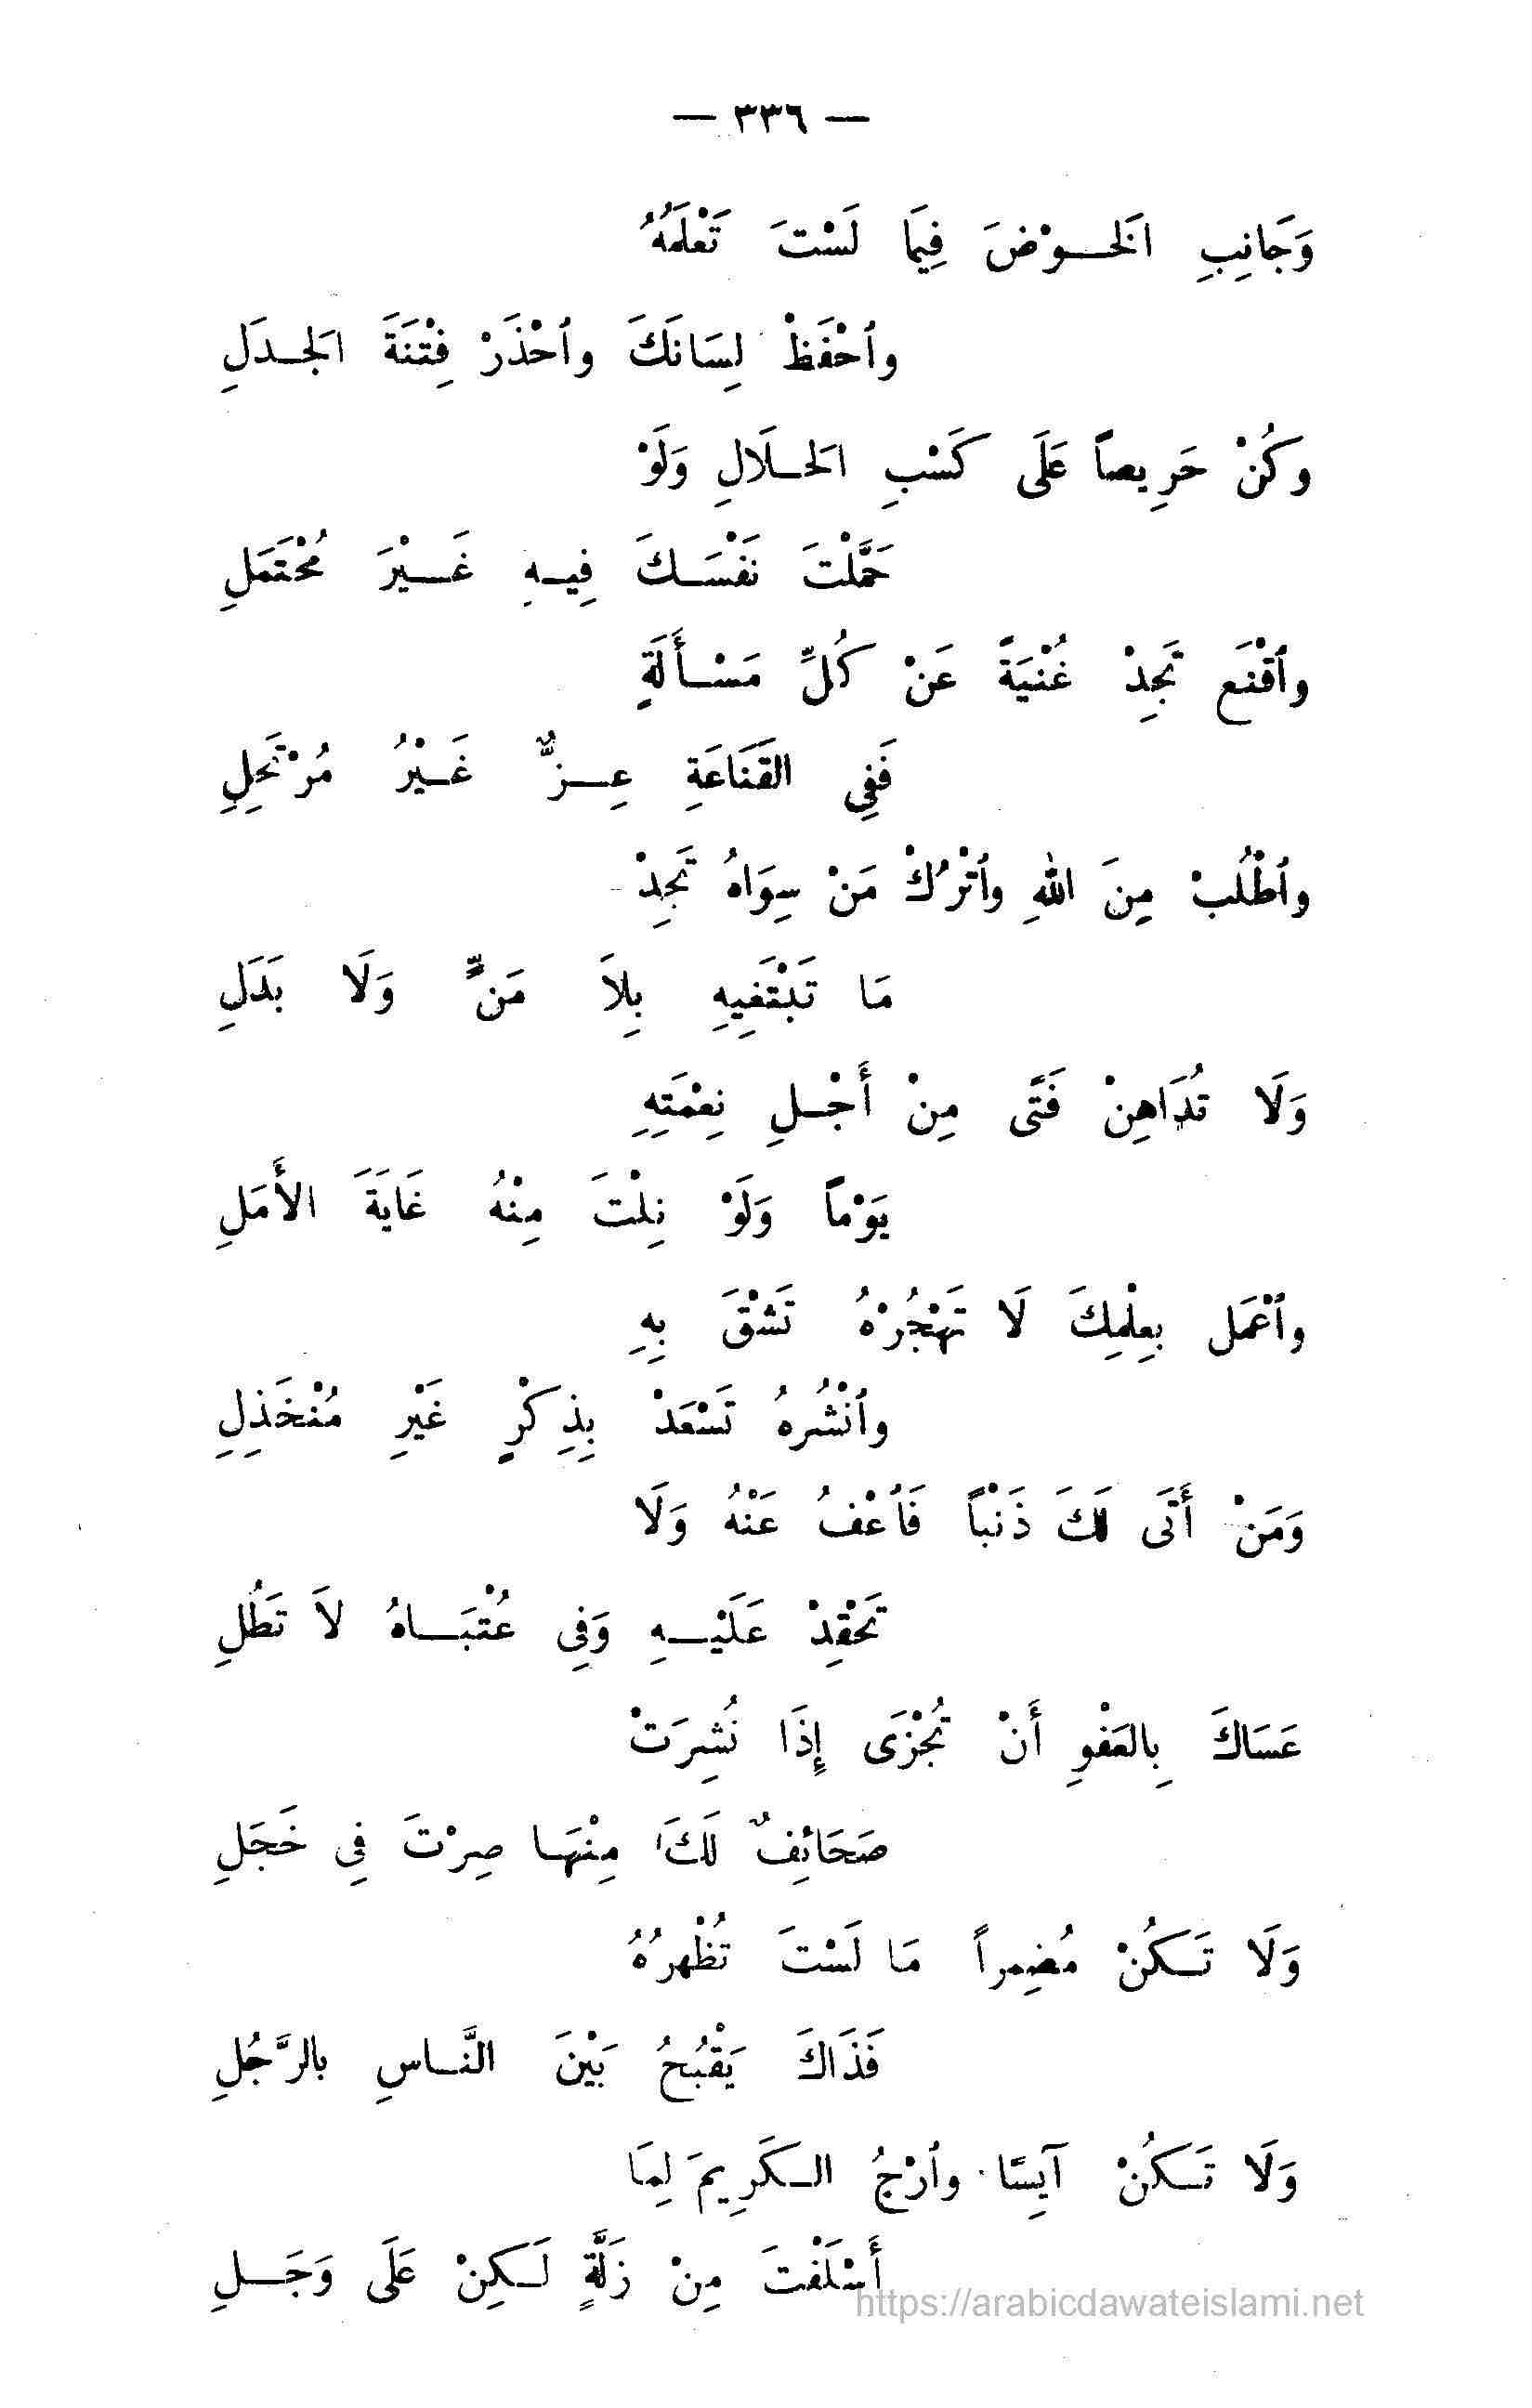 — ٣٣٦ —
وَجَانِبِ الخَوْضَ فِيمَا لَسْتَ تَعْلَمُهُ
وٱحْفَظْ لِسَانَكَ وٱحْذَرْ فِتْنَةَ الجَدَلِ
وكُنْ حَرِيصاً عَلَى كَسْبِ الحَلَالِ وَلَوْ
حَمَّلْتَ نَفْسَكَ فِيهِ غَيْرَ مُحْتَمَلِ
وٱقْنَع تَجِدْ غُنْيَةً عَنْ كُلِّ مَسْأَلَةٍ
فَفِي القَنَاعَةِ عِزٌّ غَيْرُ مُرْتَحِلِ
وٱطْلُبْ مِنَ اللهِ وٱتْرُكْ مَنْ سِوَاهُ تَجِدْ
مَا تَبْتَغِيهِ بِلاَ مَنٍّ وَلَا بَدَلِ
وَلَا تُدَاهِنْ فَتًى مِنْ أَجْلِ نِعْمَتِهِ
يَوْماً وَلَوْ نِلْتَ مِنْهُ غَايَةَ الأَمَلِ
وٱعْمَل بِعِلْمِكَ لَا تَهْجُرْهُ تَشْقَ بِهِ
وٱنْشُرهُ تَسْعَدْ بِذِكْرٍ غَيْرِ مُنْخَذِلِ
وَمَنْ أَتَى لَكَ ذَنْبًا فَٱعْفُ عَنْهُ وَلَا
تَحْقِدْ عَلَيْهِ وَفِي عُتْبَاهُ لاَ تَطُلِ
عَسَاكَ بِالعَفْوِ أَنْ تُجْزَى إِذَا نُشِرَتْ
صَحَائِفٌ لَكَ مِنْهَا صِرْتَ فِي خَجَلِ
وَلَا تَكُنْ مُضْمِراً مَا لَسْتَ تُظْهِرُهُ
فَذَاكَ يَقْبُحُ بَيْنَ النَّاسِ بالرَّجُلِ
وَلَا تَكُنْ آيِسًا وٱرْجُ الكَرِيمَ لِمَا
أَسْلَفْتَ مِنْ زَلَّةٍ لَكِنْ عَلَى وَجَلِ
https://arabicdawateislami.net